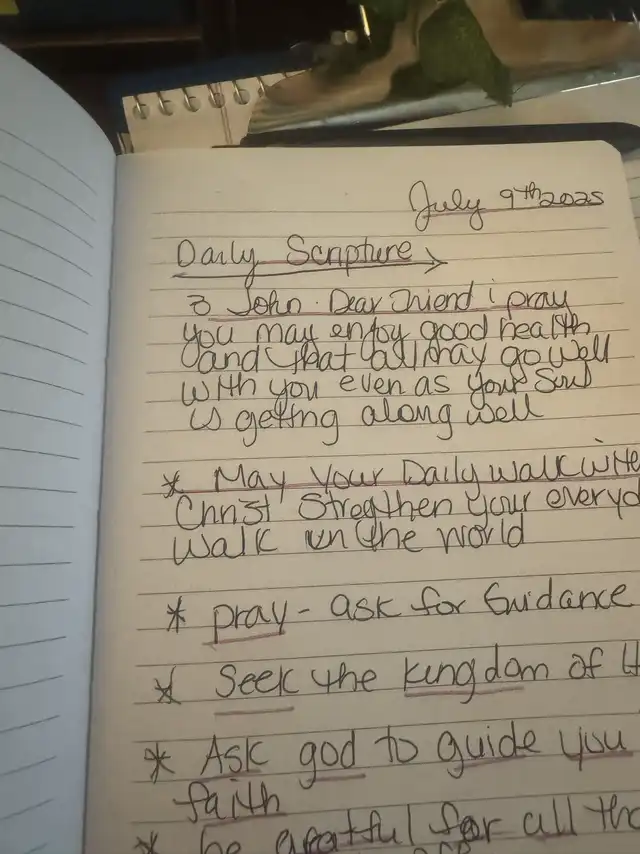 July 9th 2025
Daily Scripture
3 John. Dear friend i pray
you may enjoy good health
and that all may go well
with you even as your soul
is getting along well
* May your Daily walk with
Christ Stregthen your everyd
walk in the world
* pray - ask for Guidance
* Seek the kingdom of
* Ask god to guide you
faith
* be gratful for all